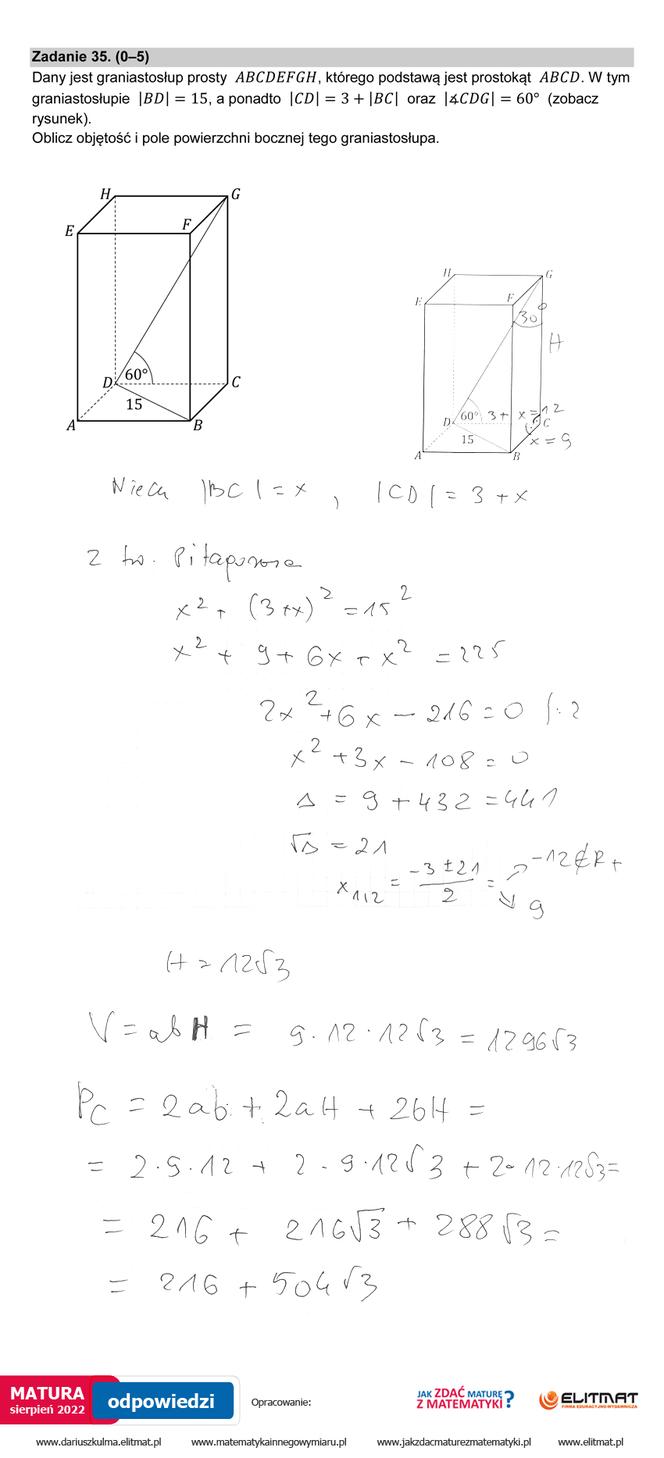 Zadanie 35. (0–5)
Dany jest graniastosłup prosty ABCDEFGH, którego podstawą jest prostokąt ABCD. W tym
graniastosłupie |BD| = 15, a ponadto |CD| = 3 + |BC| oraz |∡CDG| = 60° (zobacz
rysunek).
Oblicz objętość i pole powierzchni bocznej tego graniastosłupa.
H G
E F
D 60° C
15
A B
H G
E F
30°
H
D 60° 3+ x = 12 C
15 x = 9
A B
Niech |BC| = x , |CD| = 3 + x
z tw. Pitagorasa
x² + (3+x)² = 15²
x² + 9 + 6x + x² = 225
2x² + 6x − 216 = 0 /:2
x² + 3x − 108 = 0
Δ = 9 + 432 = 441
√Δ = 21
x₁,₂ = (−3 ± 21)/2 = ↗ −12 ∉ R+
↘ 9
H = 12√3
V = abH = 9·12·12√3 = 1296√3
Pc = 2ab + 2aH + 2bH =
= 2·9·12 + 2·9·12√3 + 2·12·12√3 =
= 216 + 216√3 + 288√3 =
= 216 + 504√3
MATURA
sierpień 2022
odpowiedzi
Opracowanie:
JAK ZDAĆ MATURĘ
Z MATEMATYKI?
ELITMAT
FIRMA EDUKACYJNO-WYDAWNICZA
www.dariuszkulma.elitmat.pl www.matematykainnegowymiaru.pl www.jakzdacmaturezmatematyki.pl www.elitmat.pl